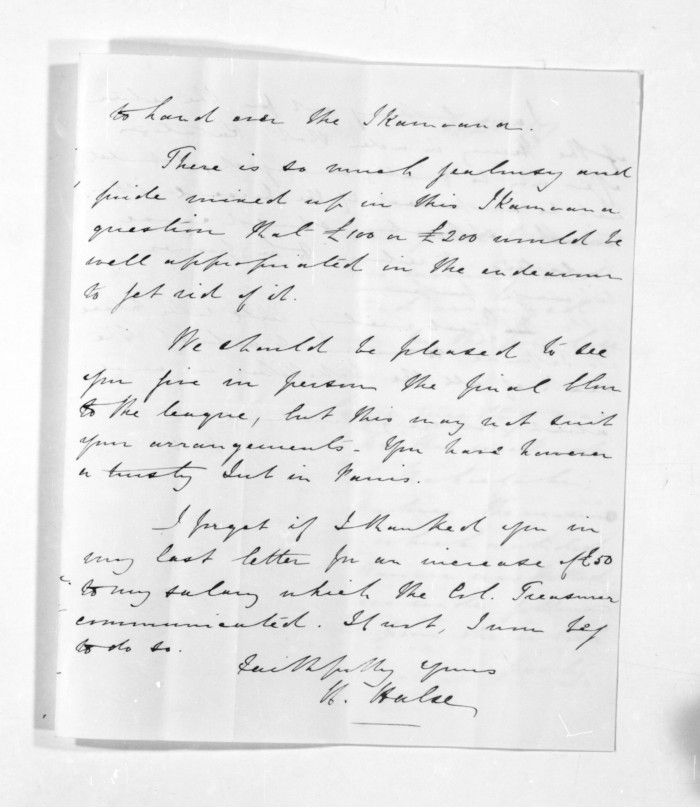 to hand over the Ikamoana.
There is so much jealousy and
pride mixed up in this Ikamoana
question that £100 or £200 would be
well appropriated in the endeavour
to get rid of it.
We should be pleased to see
you give in person the final blow
to the league, but this may not suit
your arrangements. You have however
a trusty Lieut in Parris.
I forget if I thanked you in
my last letter for an increase of £50
to my salary which the Col. Treasurer
communicated. If not, I now beg
to do so.
Faithfully yours
H. Halse